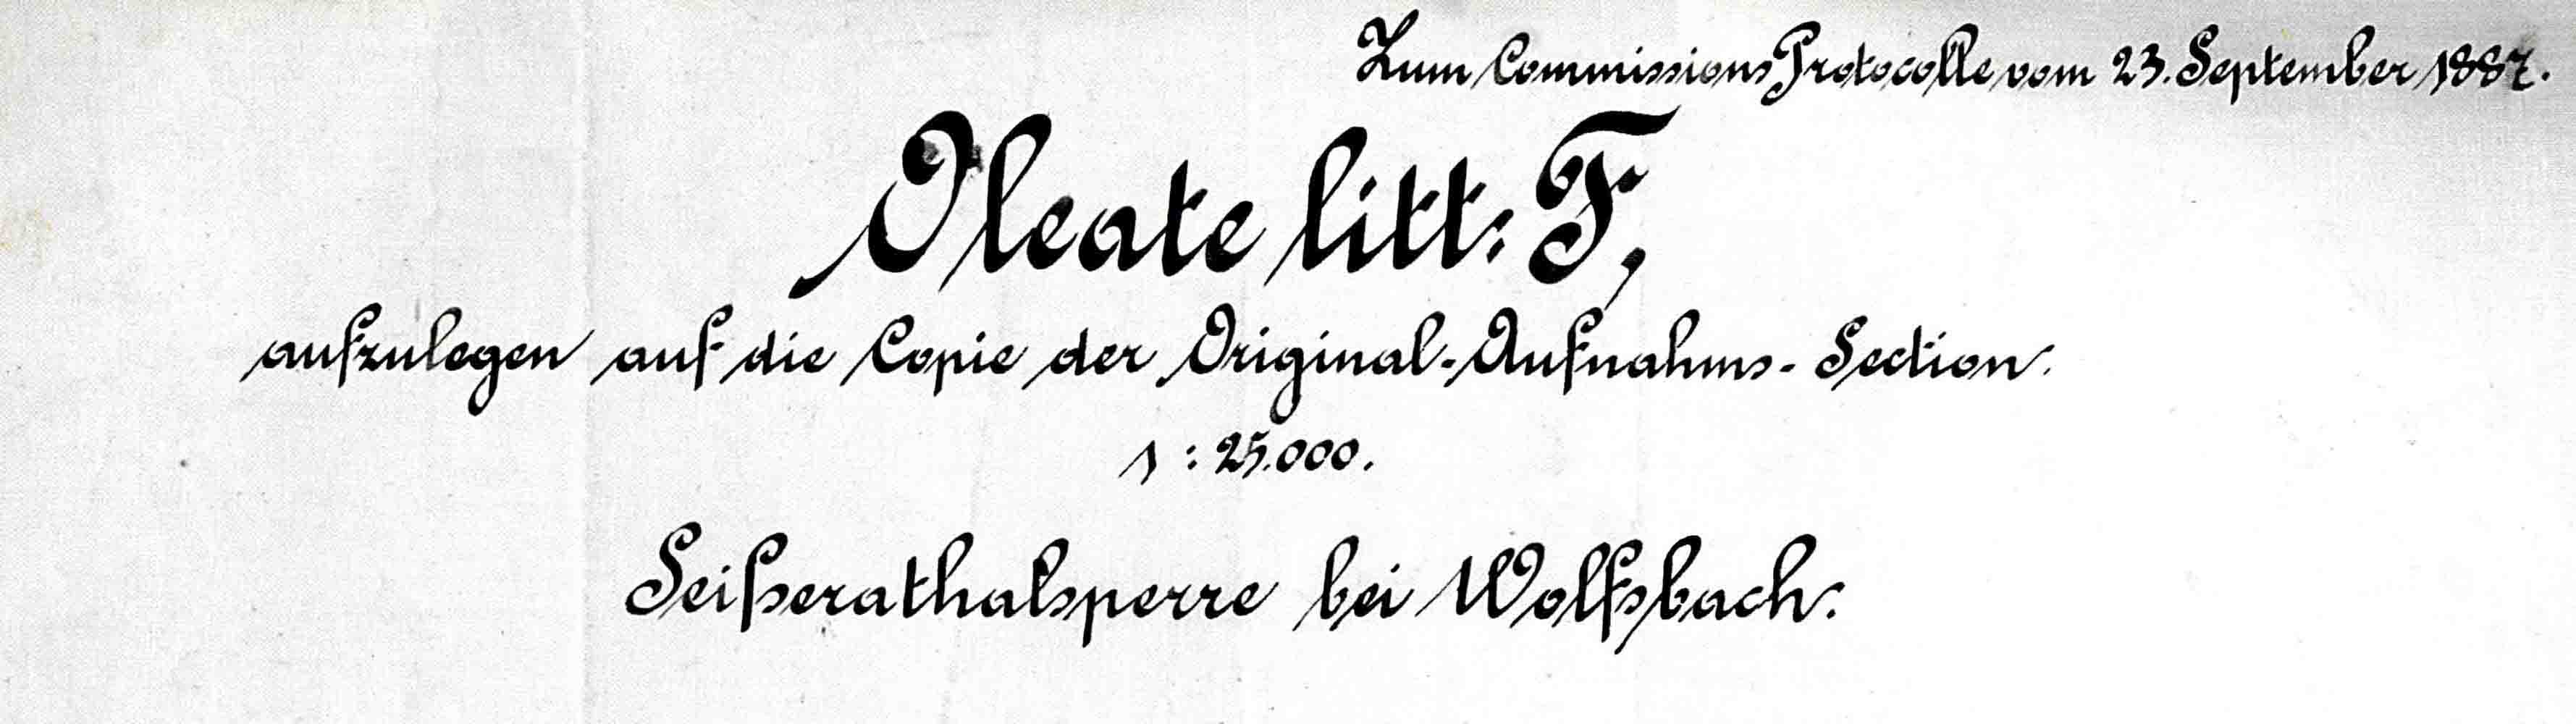 Zum Commissions Protocolle vom 23. September 1887.
Oleate litt: F,
aufzulegen auf die Copie der Original-Aufnahms-Section.
1 : 25.000.
Seißerathalsperre bei Wolfsbach.